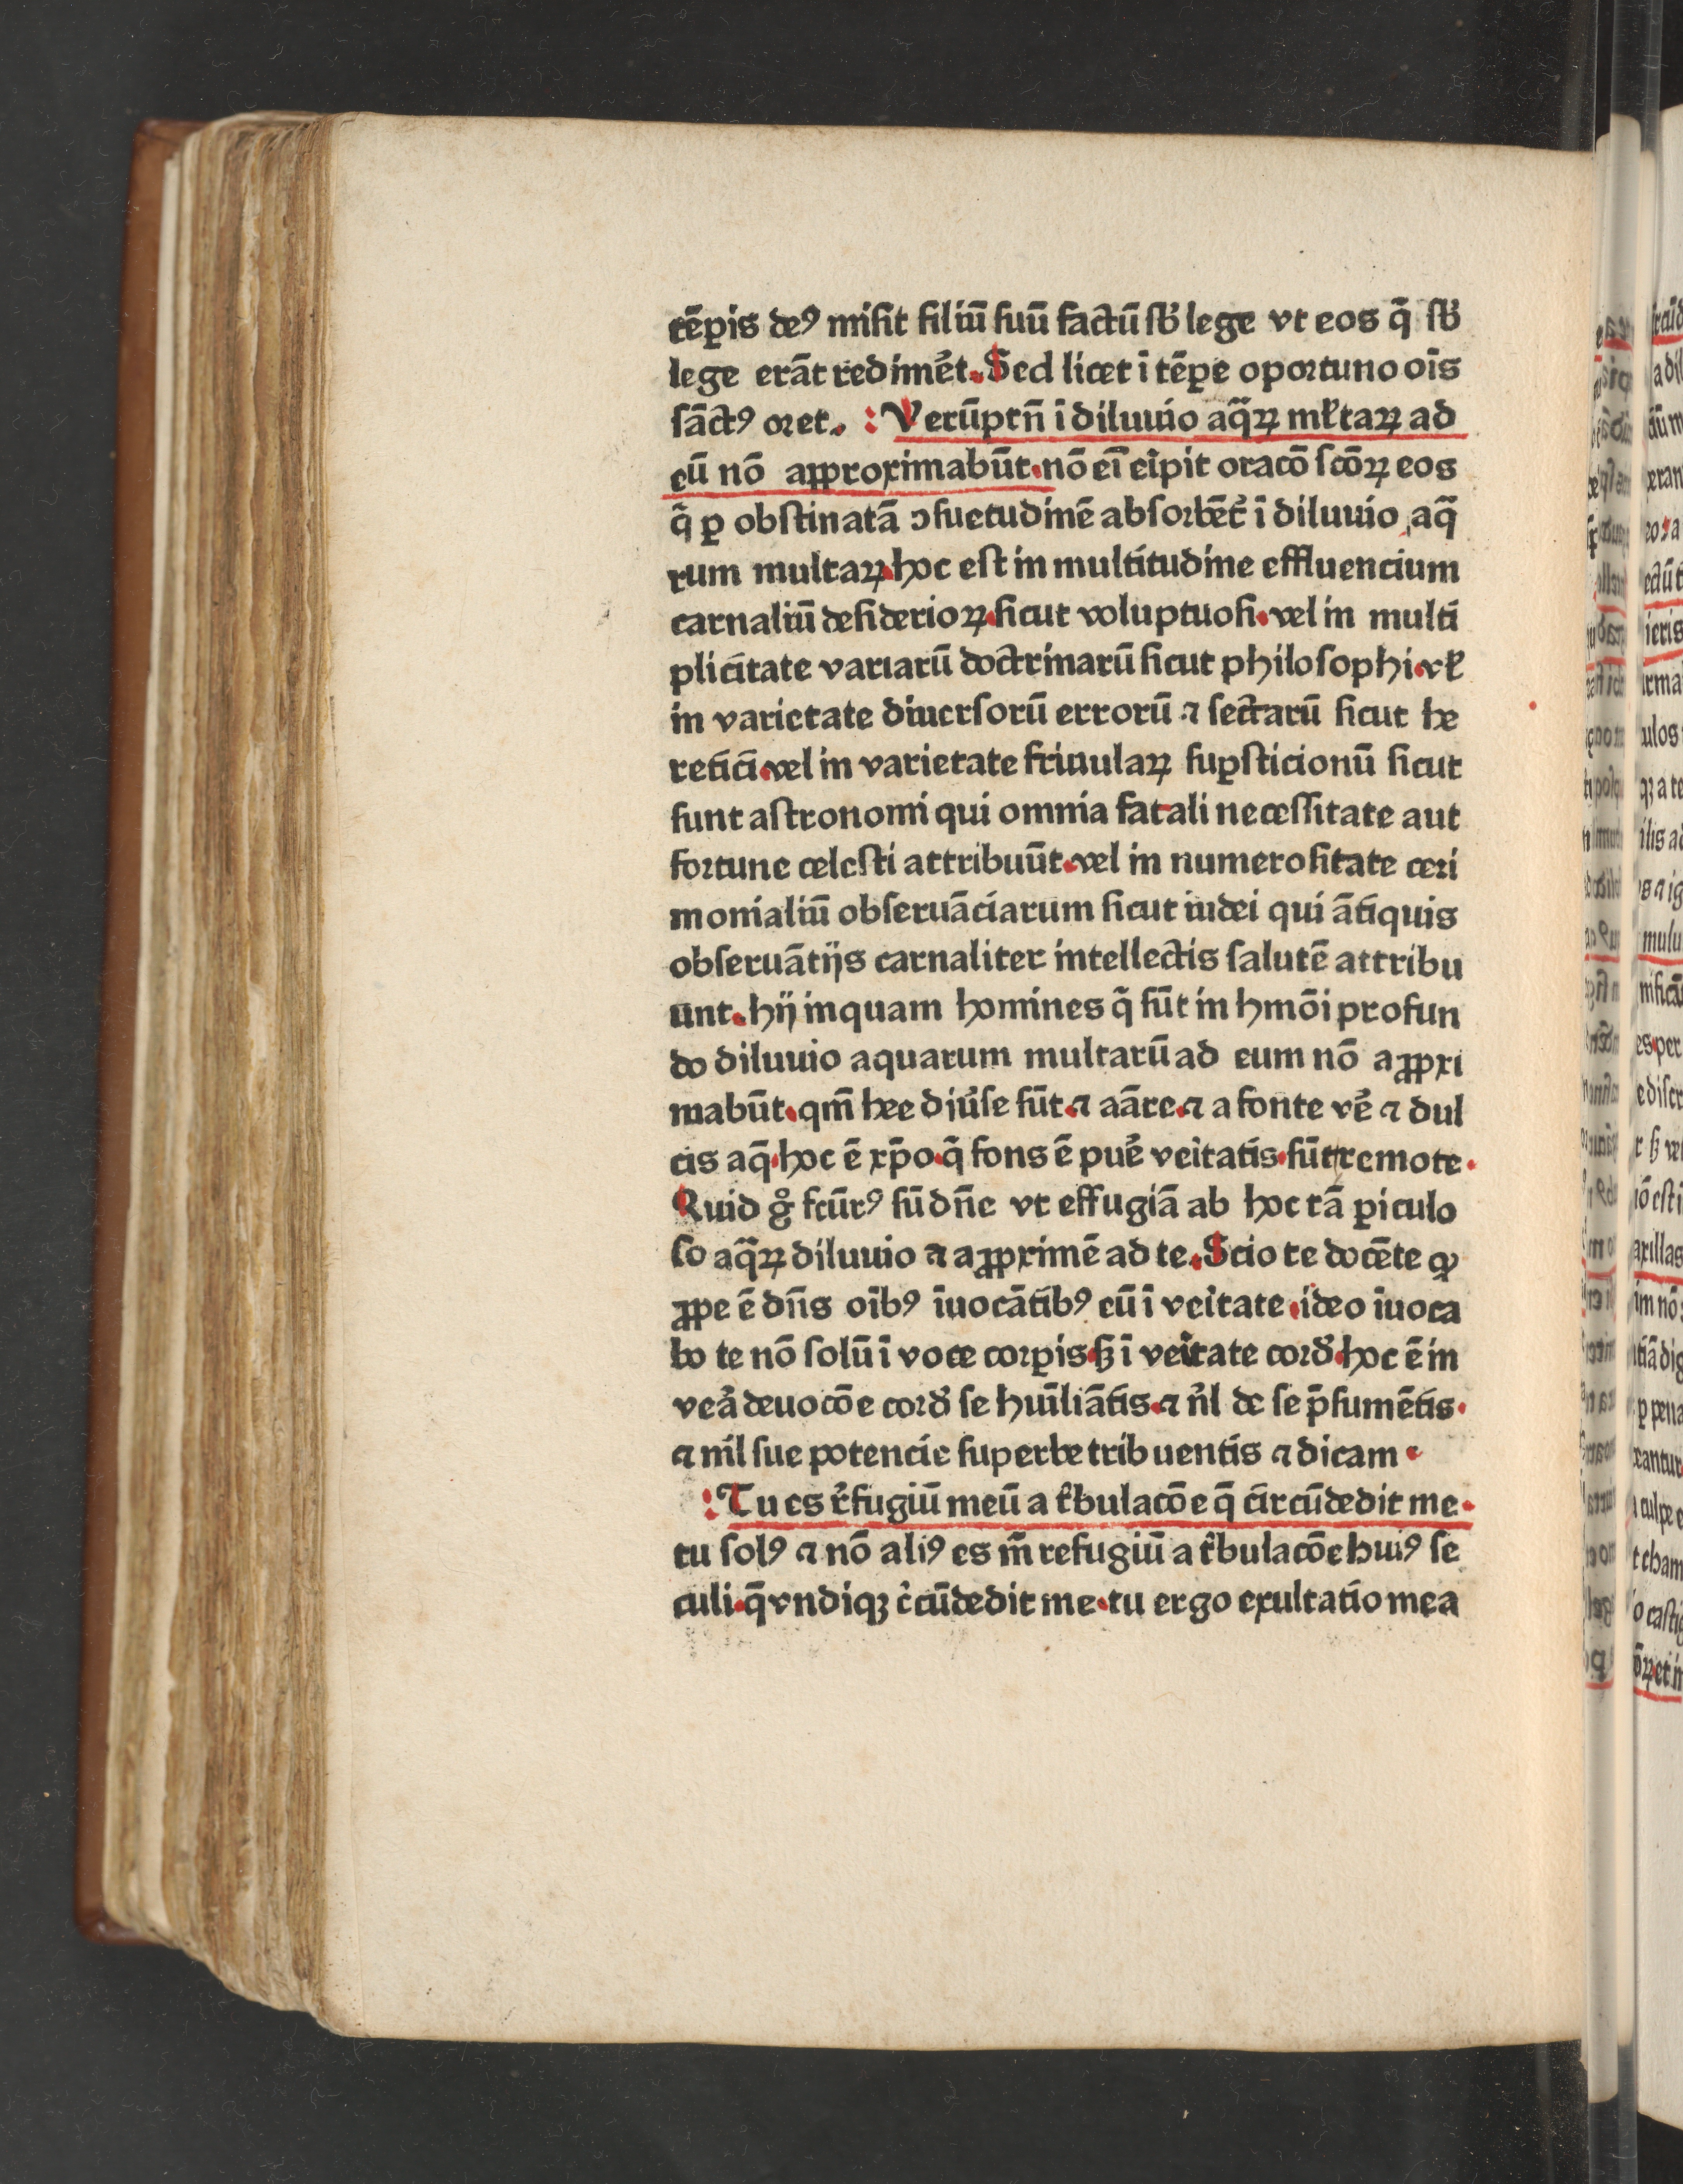 tēꝑis deꝰ misit filiū suū factū sb̾ lege vt eos q̄ sb̾
lege erāt redimēt. Sed licet ī tēꝑe oportuno oīs
sāctꝰ oret. Verūptn̄ ī diluuio aq̄ꝝ ml̓taꝝ ad
eū nō approximabūt. nō eī eripit oracō scōꝝ eos
q̄ ꝑ obstinatā ↄsuetudinē absorbēt᷑ ī diluuio aq̄
rum multaꝝ. hoc est in multitudine effluencium
carnaliū desiderioꝝ. sicut voluptuosi. vel in multi
plicitate variarū doctrinarū sicut philosophi. vl̓
in varietate diuersorū errorū ⁊ sectarū sicut he
retici. vel in varietate friuulaꝝ suꝑsticionū sicut
sunt astronomi qui omnia fatali necessitate aut
fortune celesti attribuūt. vel in numerositate ceri
monialiū obseruāciarum sicut iudei qui ātiquis
obseruātijs carnaliter intellectis salutē attribu
unt. hij inquam homines q̄ sūt in hmōi profun
do diluuio aquarum multarū ad eum nō aꝓpxi
mabūt. qm̄ hee diu̾se sūt. ⁊ aāre. ⁊ a fonte ve̾ ⁊ dul
cis aq̄. hoc ē xp̄o. q̄ fons ē pue̾ veritatis. sūt remote.
Quid gͦ fctūrꝰ sū dn̄e vt effugiā ab hoc tā ꝑiculo
so aq̄ꝝ diluuio ⁊ aꝓpximē ad te. Scio te docēte ꝙ
ꝓpe ē dn̄s oībꝰ īuocātibꝰ eū ī veritate. ideo īuoca
bo te nō solū ī voce corꝑis. sꝫ ī veritate cord̾. hoc ē in
vea̾ deuocōe cord̾ se hūiliātis. ⁊ n̾l de se p̄sumētis.
⁊ nil sue potencie superbe tribuentis ⁊ dicam.
Tu es r̾fugiū meū a tͥbulacōe q̄ circūdedit me.
tu solꝰ ⁊ nō aliꝰ es m̄ refugiū a tͥbulacōe huiꝰ se
culi. q̄ vndiqꝫ c̾cūdedit me. tu ergo exultatio mea